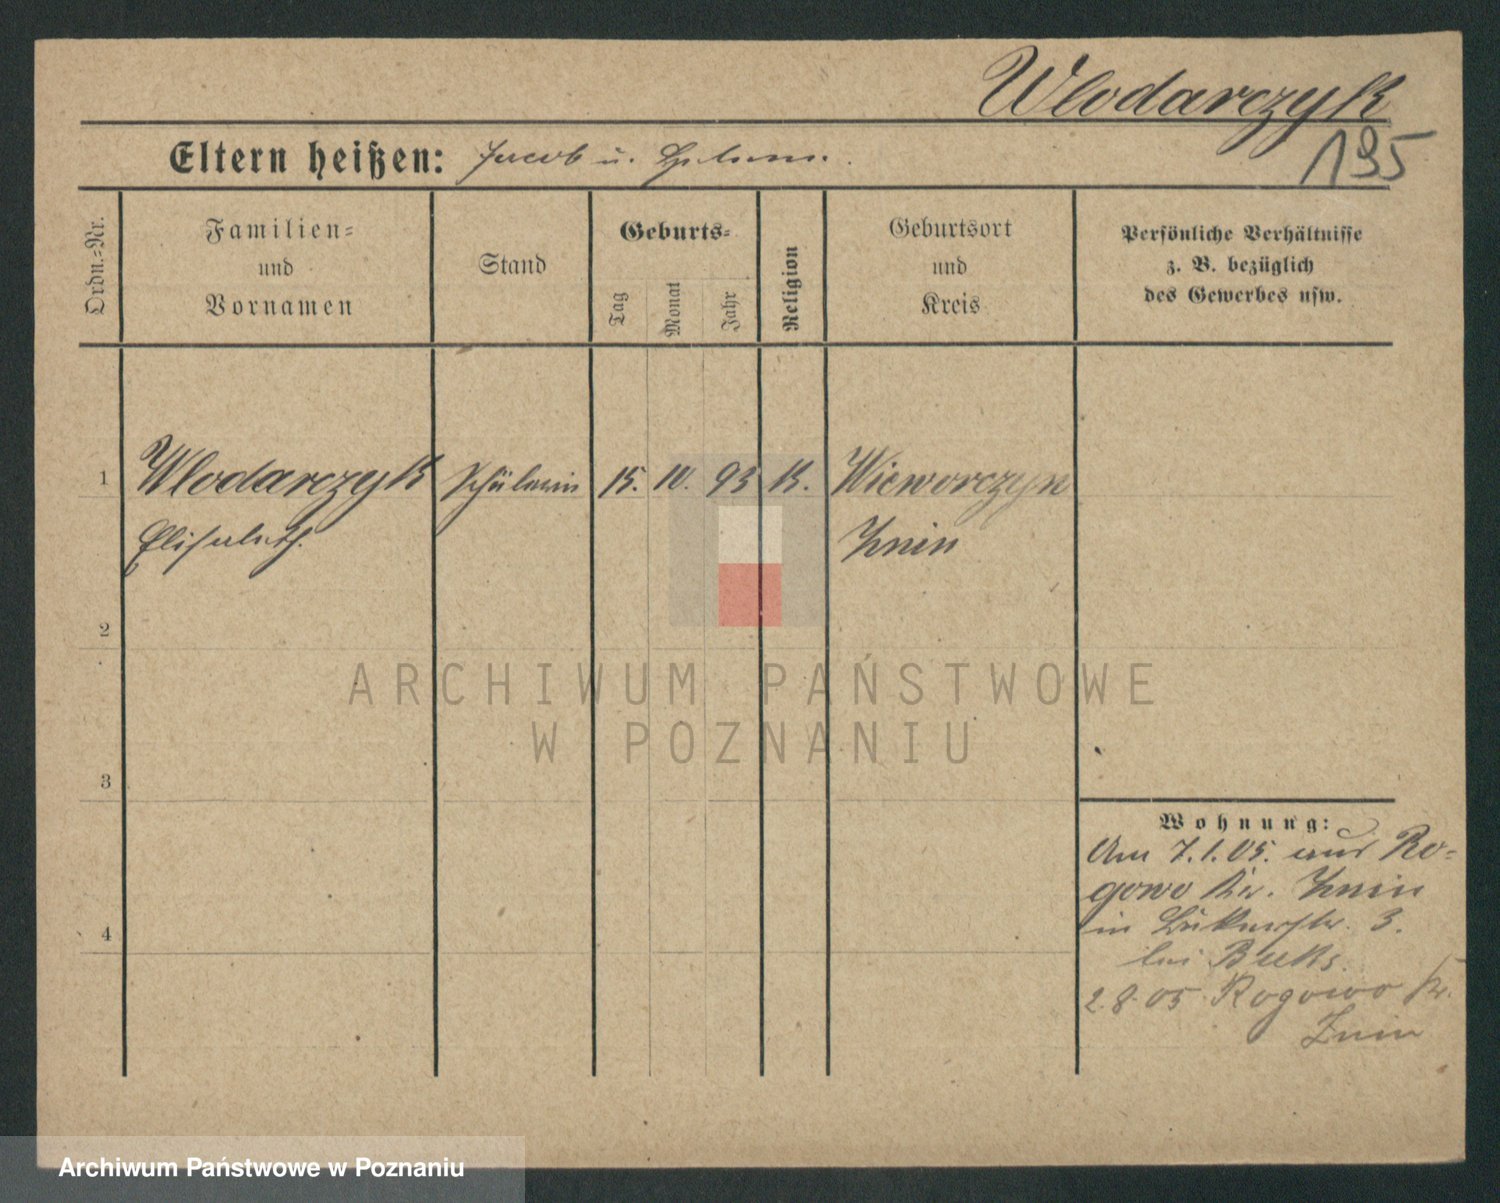 Wlodarczyk
195
Eltern heißen: Jacob u.
Ordn.=Nr.
Familien=
und
Vornamen
Stand
Geburts=
Tag
Monat
Jahr
Religion
Geburtsort
und
Kreis
Persönliche Verhältnisse
z. B. bezüglich
des Gewerbes usw.
1
Wlodarczyk Schülerin 15. 10. 93 K. Wieworczyn
Elisabeth. Znin
2
3
4
Wohnung:
Am 7.1.05. aus Ro-
gowo Kr. Znin
in 3.
bei
2.8.05 Rogowo Kr.
Znin
ARCHIWUM PAŃSTWOWE
W POZNANIU
Archiwum Państwowe w Poznaniu